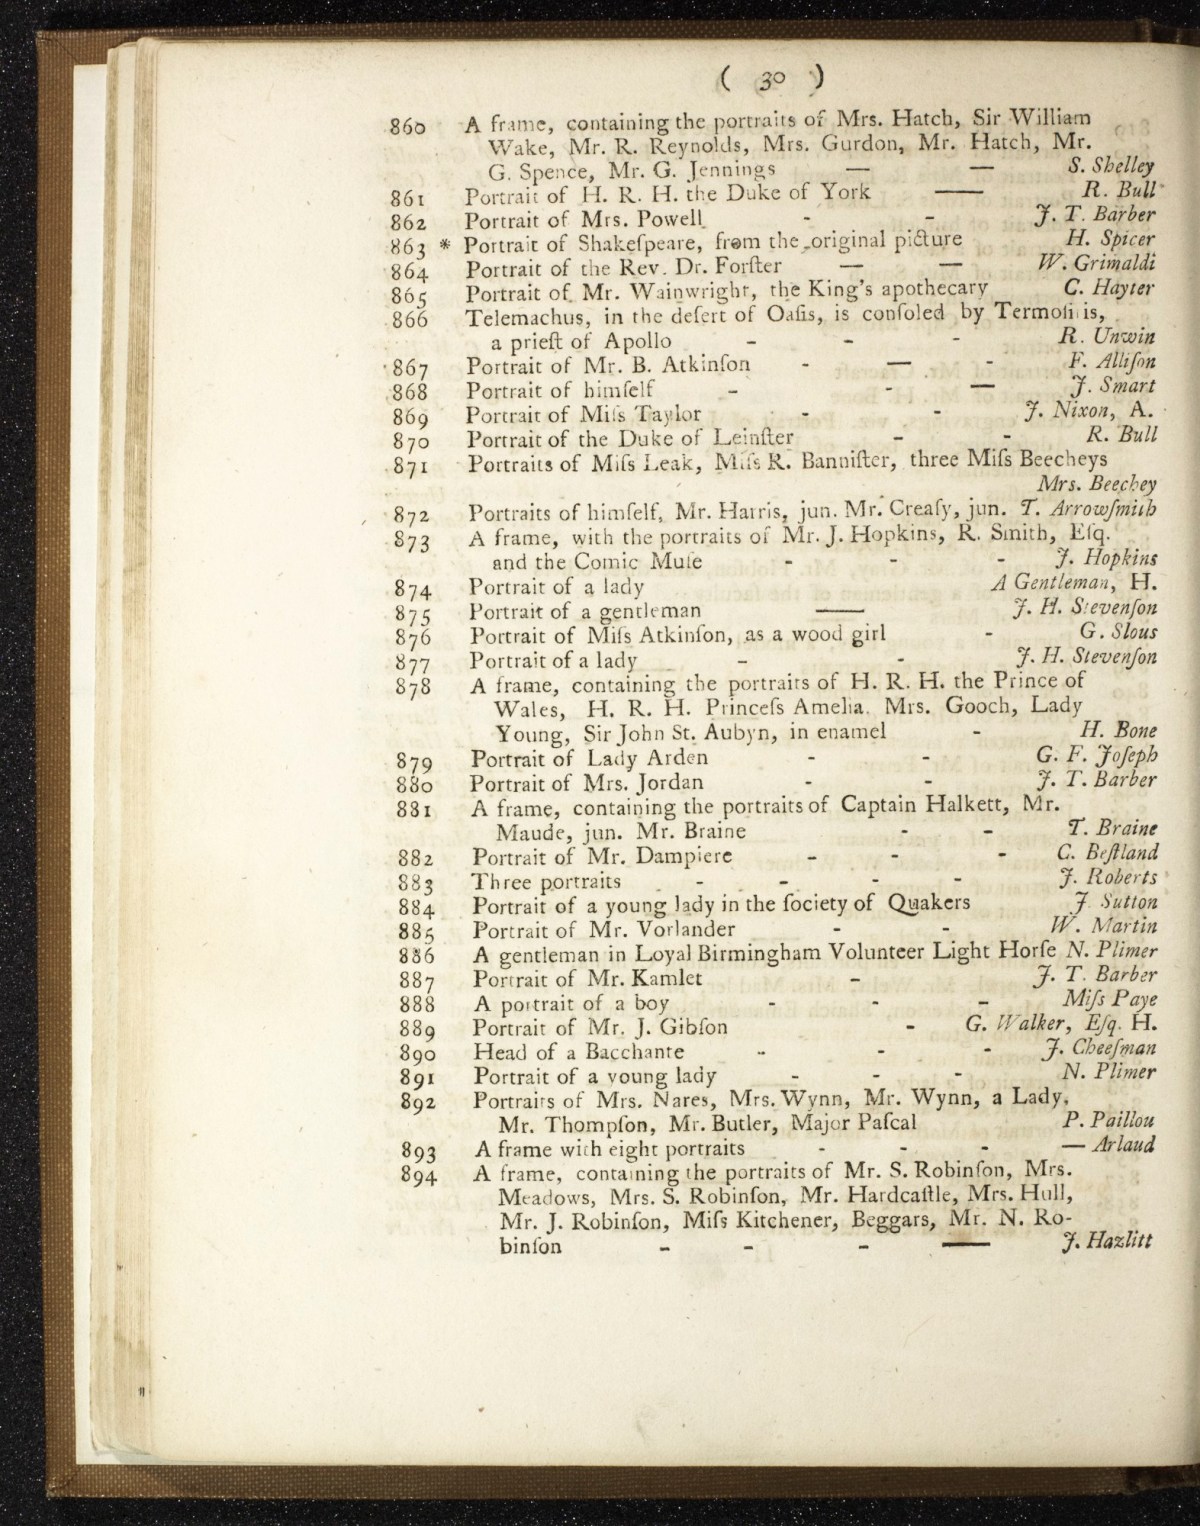 ( 30 )
860 A frame, containing the portraits of Mrs. Hatch, Sir William
Wake, Mr. R. Reynolds, Mrs. Gurdon, Mr. Hatch, Mr.
G. Spence, Mr. G. Jennings — — S. Shelley
861 Portrait of H. R. H. the Duke of York —— R. Bull
862 Portrait of Mrs. Powell - - J. T. Barber
863 * Portrait of Shakeſpeare, from the original picture H. Spicer
864 Portrait of the Rev. Dr. Forſter — — W. Grimaldi
865 Portrait of Mr. Wainwright, the King's apothecary C. Hayter
866 Telemachus, in the deſert of Oaſis, is conſoled by Termoſiris,
a prieſt of Apollo - - - R. Unwin
867 Portrait of Mr. B. Atkinſon - — - F. Alliſon
868 Portrait of himſelf - - — J. Smart
869 Portrait of Miſs Taylor - - J. Nixon, A.
870 Portrait of the Duke of Leinſter - - R. Bull
871 Portraits of Miſs Leak, Miſs R. Banniſter, three Miſs Beecheys
Mrs. Beechey
872 Portraits of himſelf, Mr. Harris, jun. Mr. Creaſy, jun. T. Arrowſmith
873 A frame, with the portraits of Mr. J. Hopkins, R. Smith, Eſq.
and the Comic Muſe - - - J. Hopkins
874 Portrait of a lady A Gentleman, H.
875 Portrait of a gentleman —— J. H. Stevenſon
876 Portrait of Miſs Atkinſon, as a wood girl - G. Slous
877 Portrait of a lady - - J. H. Stevenſon
878 A frame, containing the portraits of H. R. H. the Prince of
Wales, H. R. H. Princeſs Amelia. Mrs. Gooch, Lady
Young, Sir John St. Aubyn, in enamel - H. Bone
879 Portrait of Lady Arden - - G. F. Joſeph
880 Portrait of Mrs. Jordan - - J. T. Barber
881 A frame, containing the portraits of Captain Halkett, Mr.
Maude, jun. Mr. Braine - - T. Braine
882 Portrait of Mr. Dampiere - - - C. Beſtland
883 Three portraits - - - - J. Roberts
884 Portrait of a young lady in the ſociety of Quakers J. Sutton
885 Portrait of Mr. Vorlander - - W. Martin
886 A gentleman in Loyal Birmingham Volunteer Light Horſe N. Plimer
887 Portrait of Mr. Kamlet - J. T. Barber
888 A portrait of a boy - - - Miſs Paye
889 Portrait of Mr. J. Gibſon - G. Walker, Eſq. H.
890 Head of a Bacchante - - - J. Cheeſman
891 Portrait of a young lady - - - N. Plimer
892 Portraits of Mrs. Nares, Mrs. Wynn, Mr. Wynn, a Lady,
Mr. Thompſon, Mr. Butler, Major Paſcal P. Paillou
893 A frame with eight portraits - - - — Arlaud
894 A frame, containing the portraits of Mr. S. Robinſon, Mrs.
Meadows, Mrs. S. Robinſon, Mr. Hardcaſtle, Mrs. Hull,
Mr. J. Robinſon, Miſs Kitchener, Beggars, Mr. N. Ro-
binſon - - - —— J. Hazlitt